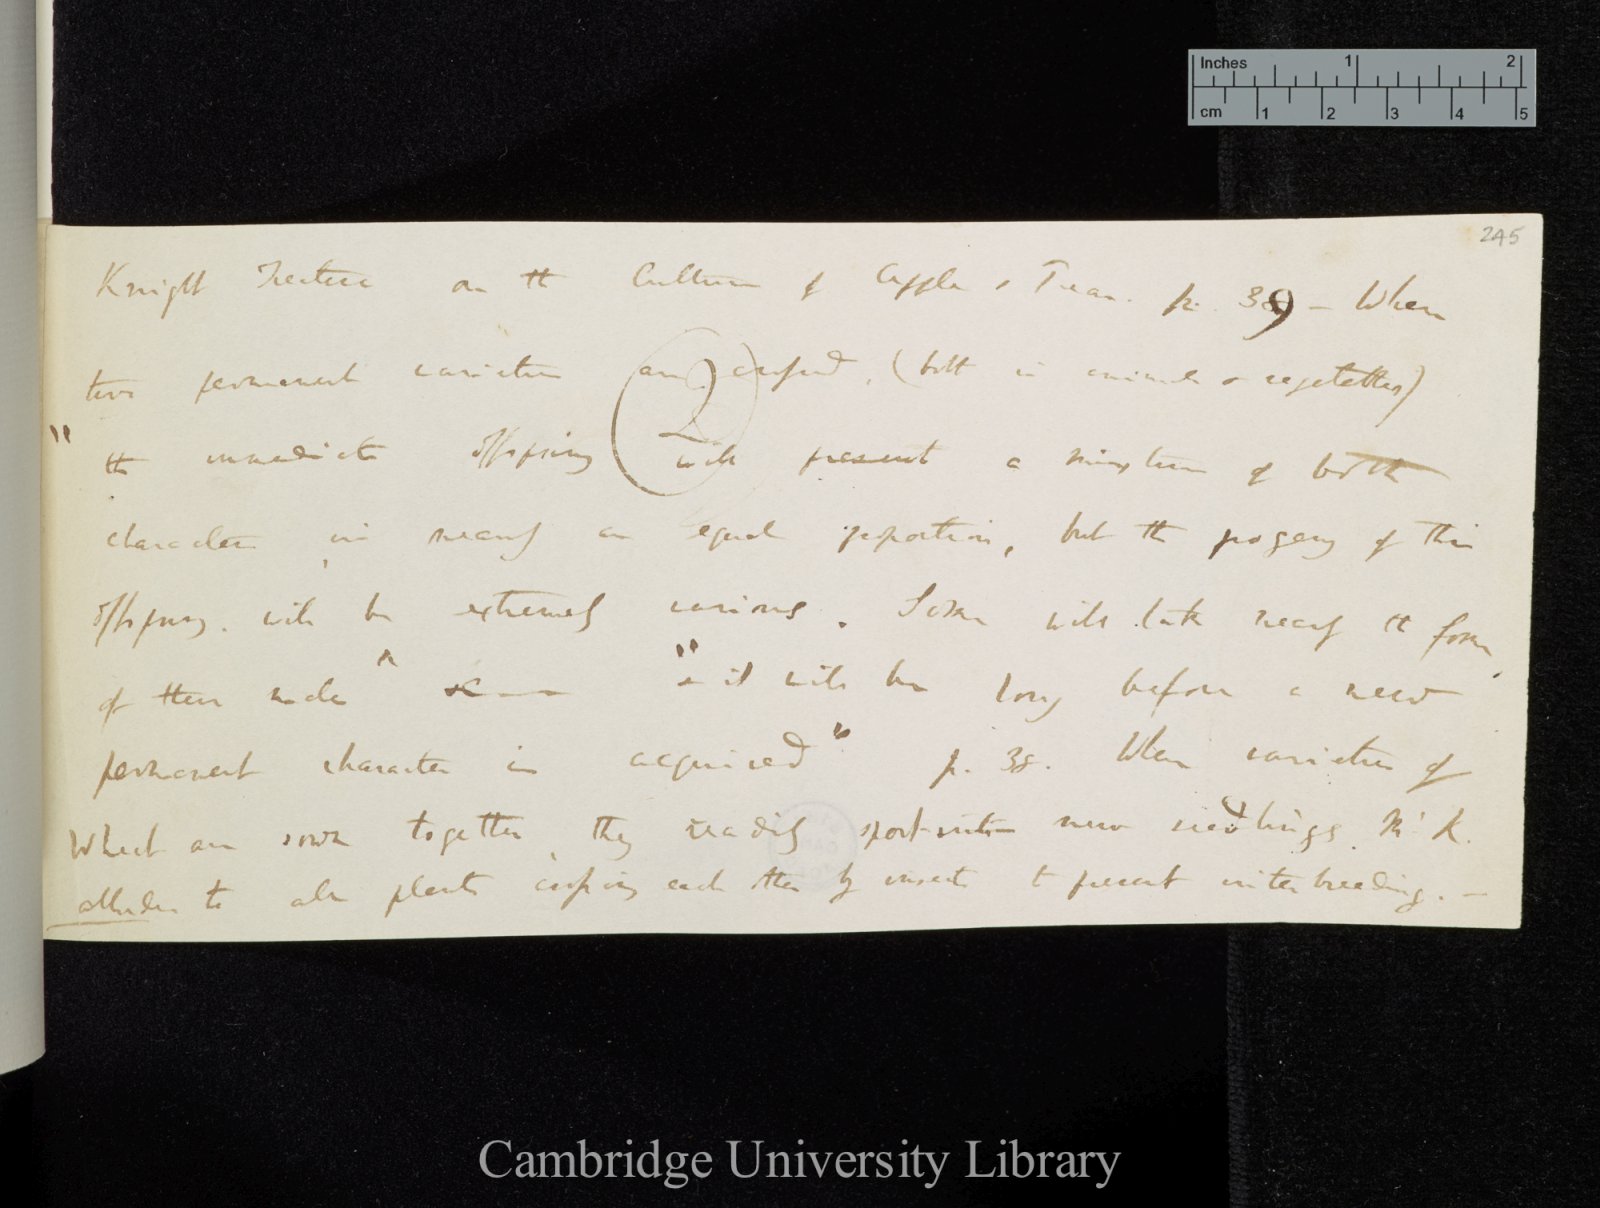 Inches 1 2
cm 1 2 3 4 5
245
Knight Treatise on the Culture of Apple & Pear. p. 39 — When
two permanent varieties are crossed, (both in animals & vegetables)
2
" the immediate offspring will present a mixture of both
character in nearly an equal proportion, but the progeny of this
offspring will be extremely various. Some will take nearly the form
of their male " & —— " & it will be long before a new
permanent character is acquired" p. 38. When varieties of
Wheat are sown together they readily sport into new seedlings Mr K.
alludes to all plants crossing each other by insects to prevent interbreeding. —
Cambridge University Library